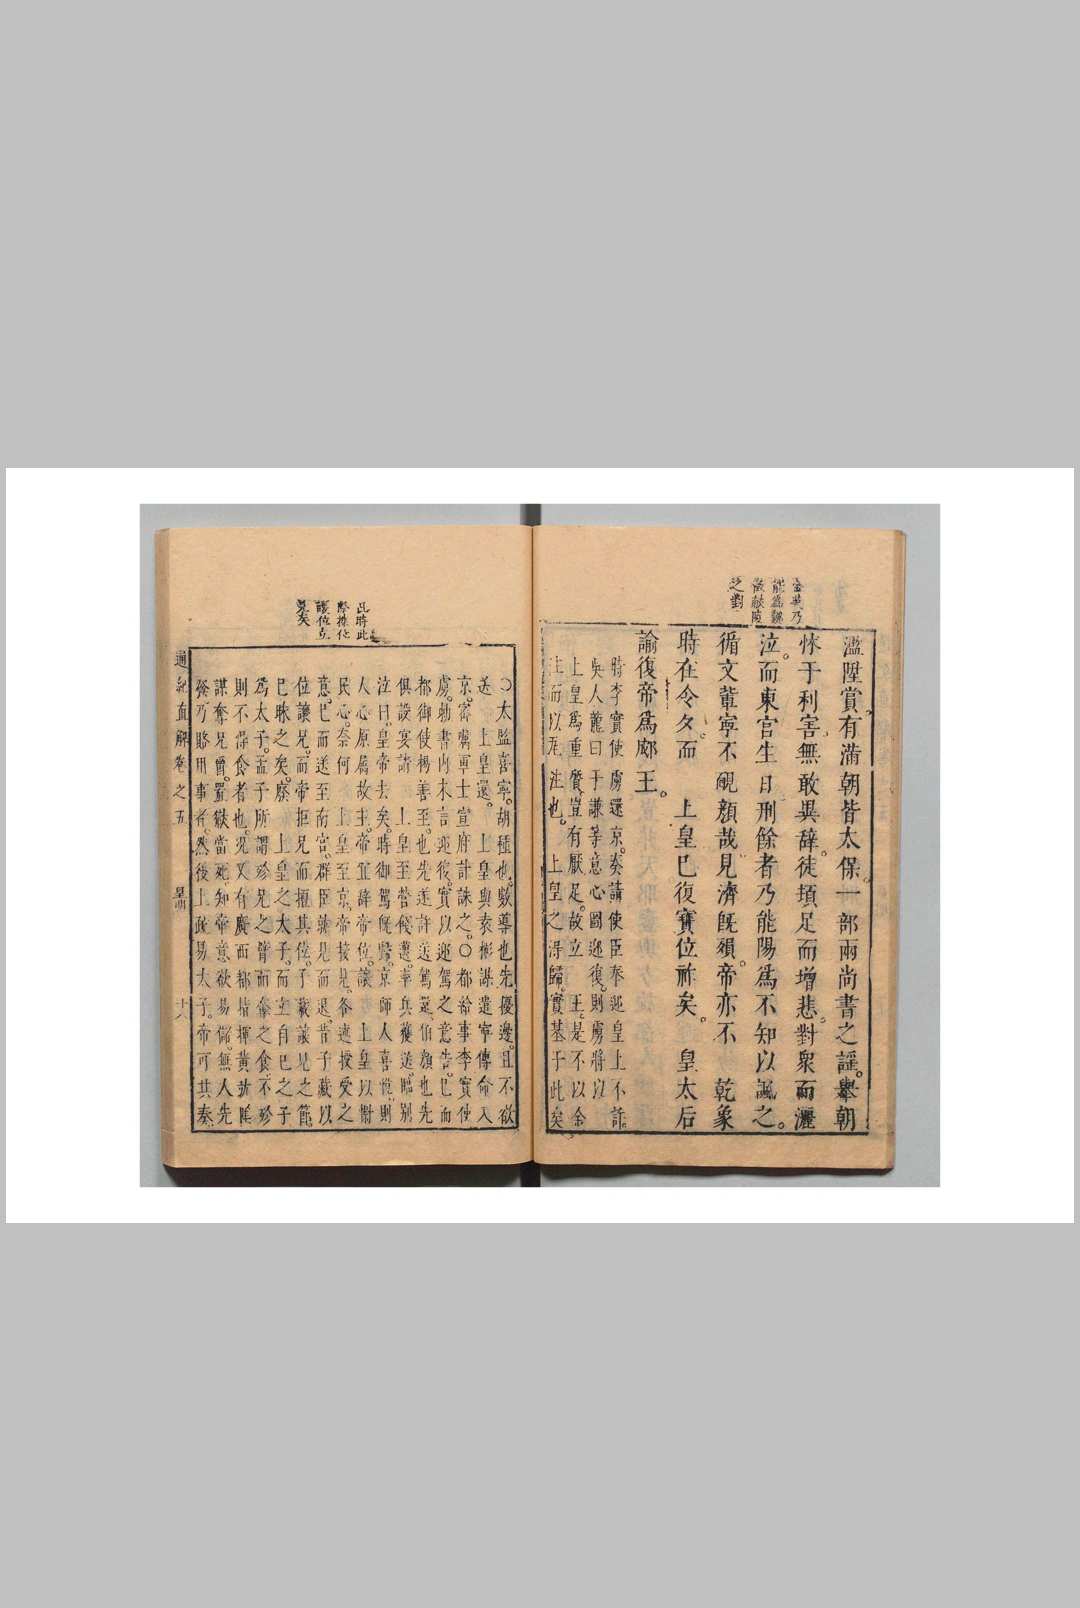 金英乃
能爲魏
徵獻陵
之對
濫陞賞。有滿朝皆太保。一部兩尚書之謡。舉朝
怵于利害。無敢異辭。徒頓足而增悲。對衆而灑
泣。而東宮生日刑餘者乃能陽爲不知以諷之。
循文輩寧不靦顏哉見濟旣殞。帝亦不 乾象
時在令久。而 上皇巳復寶位祚矣。 皇太后
諭復帝爲郕王。
時李實使虜還京。奏請使臣奉迎皇上不許。
吳人龍曰于謙等意心圖迎復。則虜將以
上皇爲重質。豈有厭足。故立 王。是不以余
主而以 注也。 上皇之得歸。實基于此矣
此時此
際推位
讓位立
見矣
○太監喜寧。胡種也。數導也先擾邊。且不欲
送 上皇還。 上皇與袁彬謀遣寧傳命入
京。密虜軍士宣府計誅之。○都給事李實使
虜。勅書內未言迎復。實以迎駕之意告。巳而
都御使楊善至。也先遂許送駕還。伯顏也先
俱設宴請 上皇至營餞遷。率兵護送。臨別
泣曰。皇帝去矣。時御駕旣歸。京師人喜悅。則
人心原屬故主。帝宜辭帝位。讓 上皇以慰
民心。奈何 上皇至京。帝接見。各述授受之
意。巳而送至南宮。群臣朝見而退。昔子臧以
位讓兄。而帝拒兄而擅其位。子臧讓兄之節。
巳昧之矣。廢 上皇之太子。而立自巳之子
爲太子。孟子所謂紾兄之臂而奪之食。不紾
則不得食者也。况又有廣西都指揮黃竑陰
謀奪兄嗣。置獄當死。知帝意欲易儲。無人先
發乃賂用事者。然後上疏易太子。帝可其奏。
通紀直解卷之五 景 十八